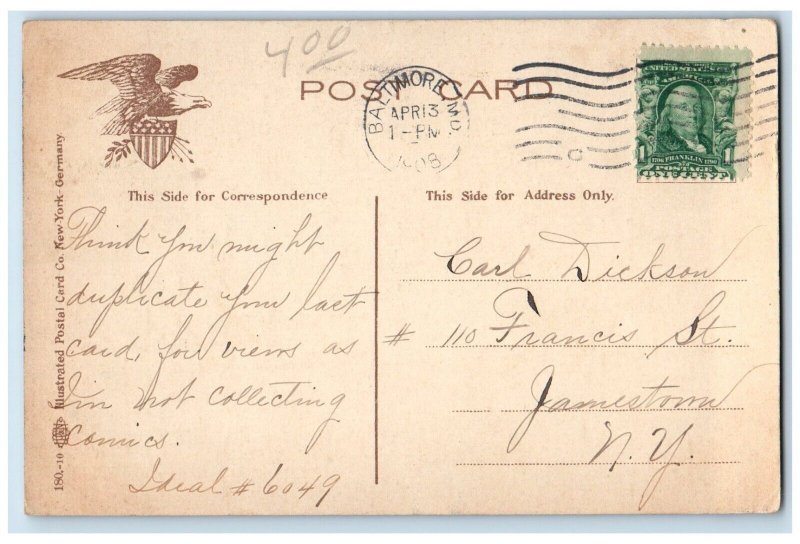 400
POST CARD
BALTIMORE, MD.
APR 13
1-PM
1908
UNITED STATES
1706 FRANKLIN 1790
POSTAGE
This Side for Correspondence
This Side for Address Only.
Think you might
duplicate your last
card, for views as
I'm not collecting
comics.
Ideal # 6049
Carl Dickson
# 110 Francis St.
Jamestown
N. Y.
180.-10 Illustrated Postal Card Co. New-York - Germany